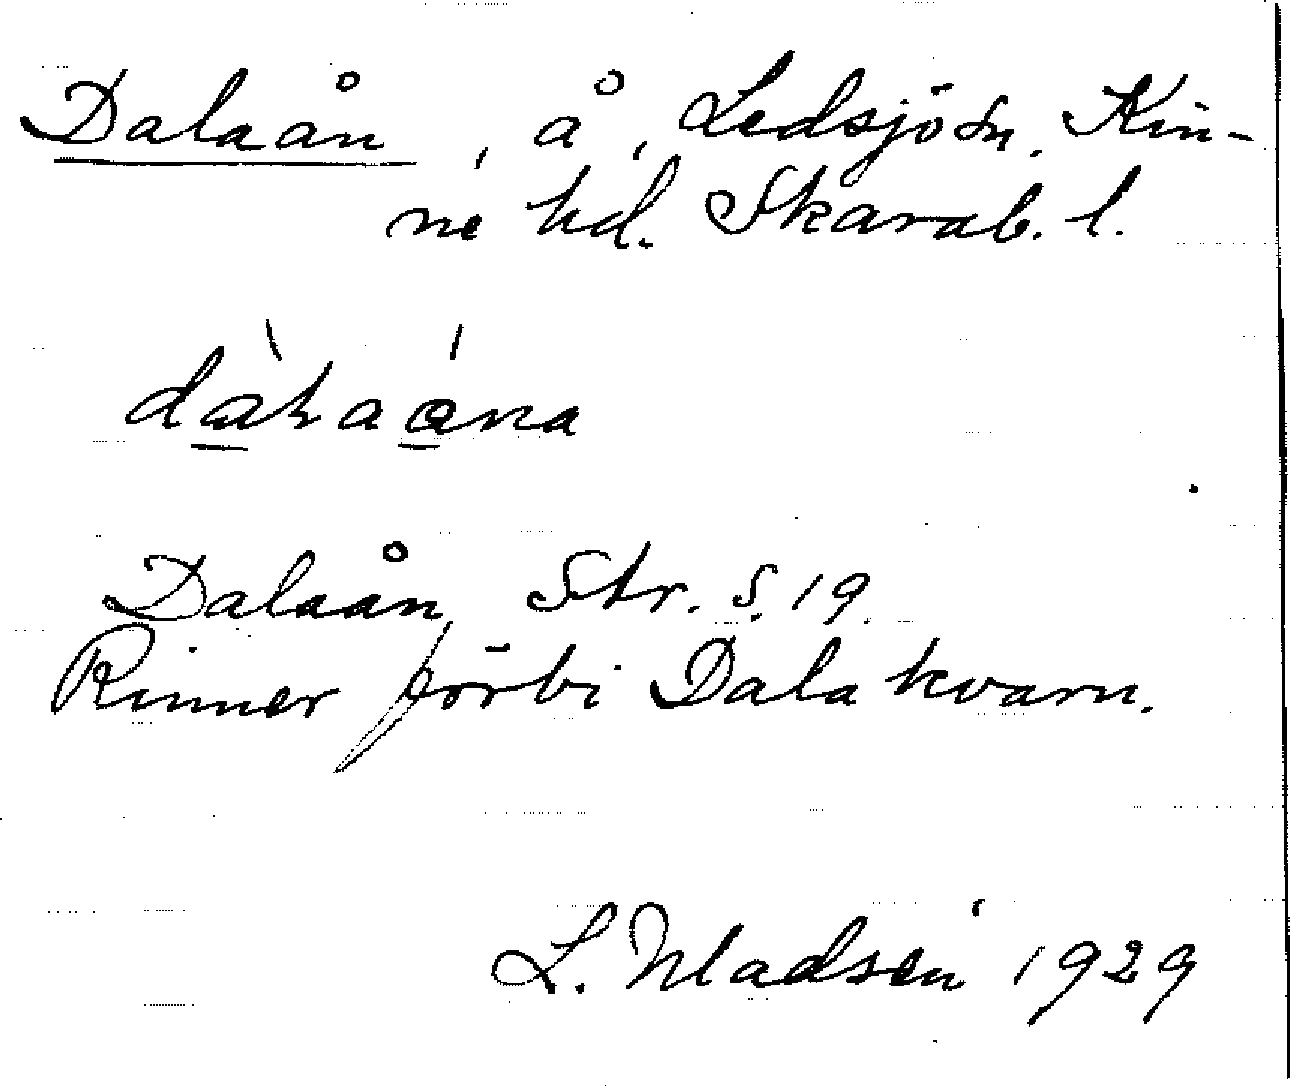 Dalaån, å, Ledsjö sn. Kin-
ne hd. Skarab. l.
Dalaån Str. S. 19.
Rinner förbi Dala kvarn.
L. Madsén 1929